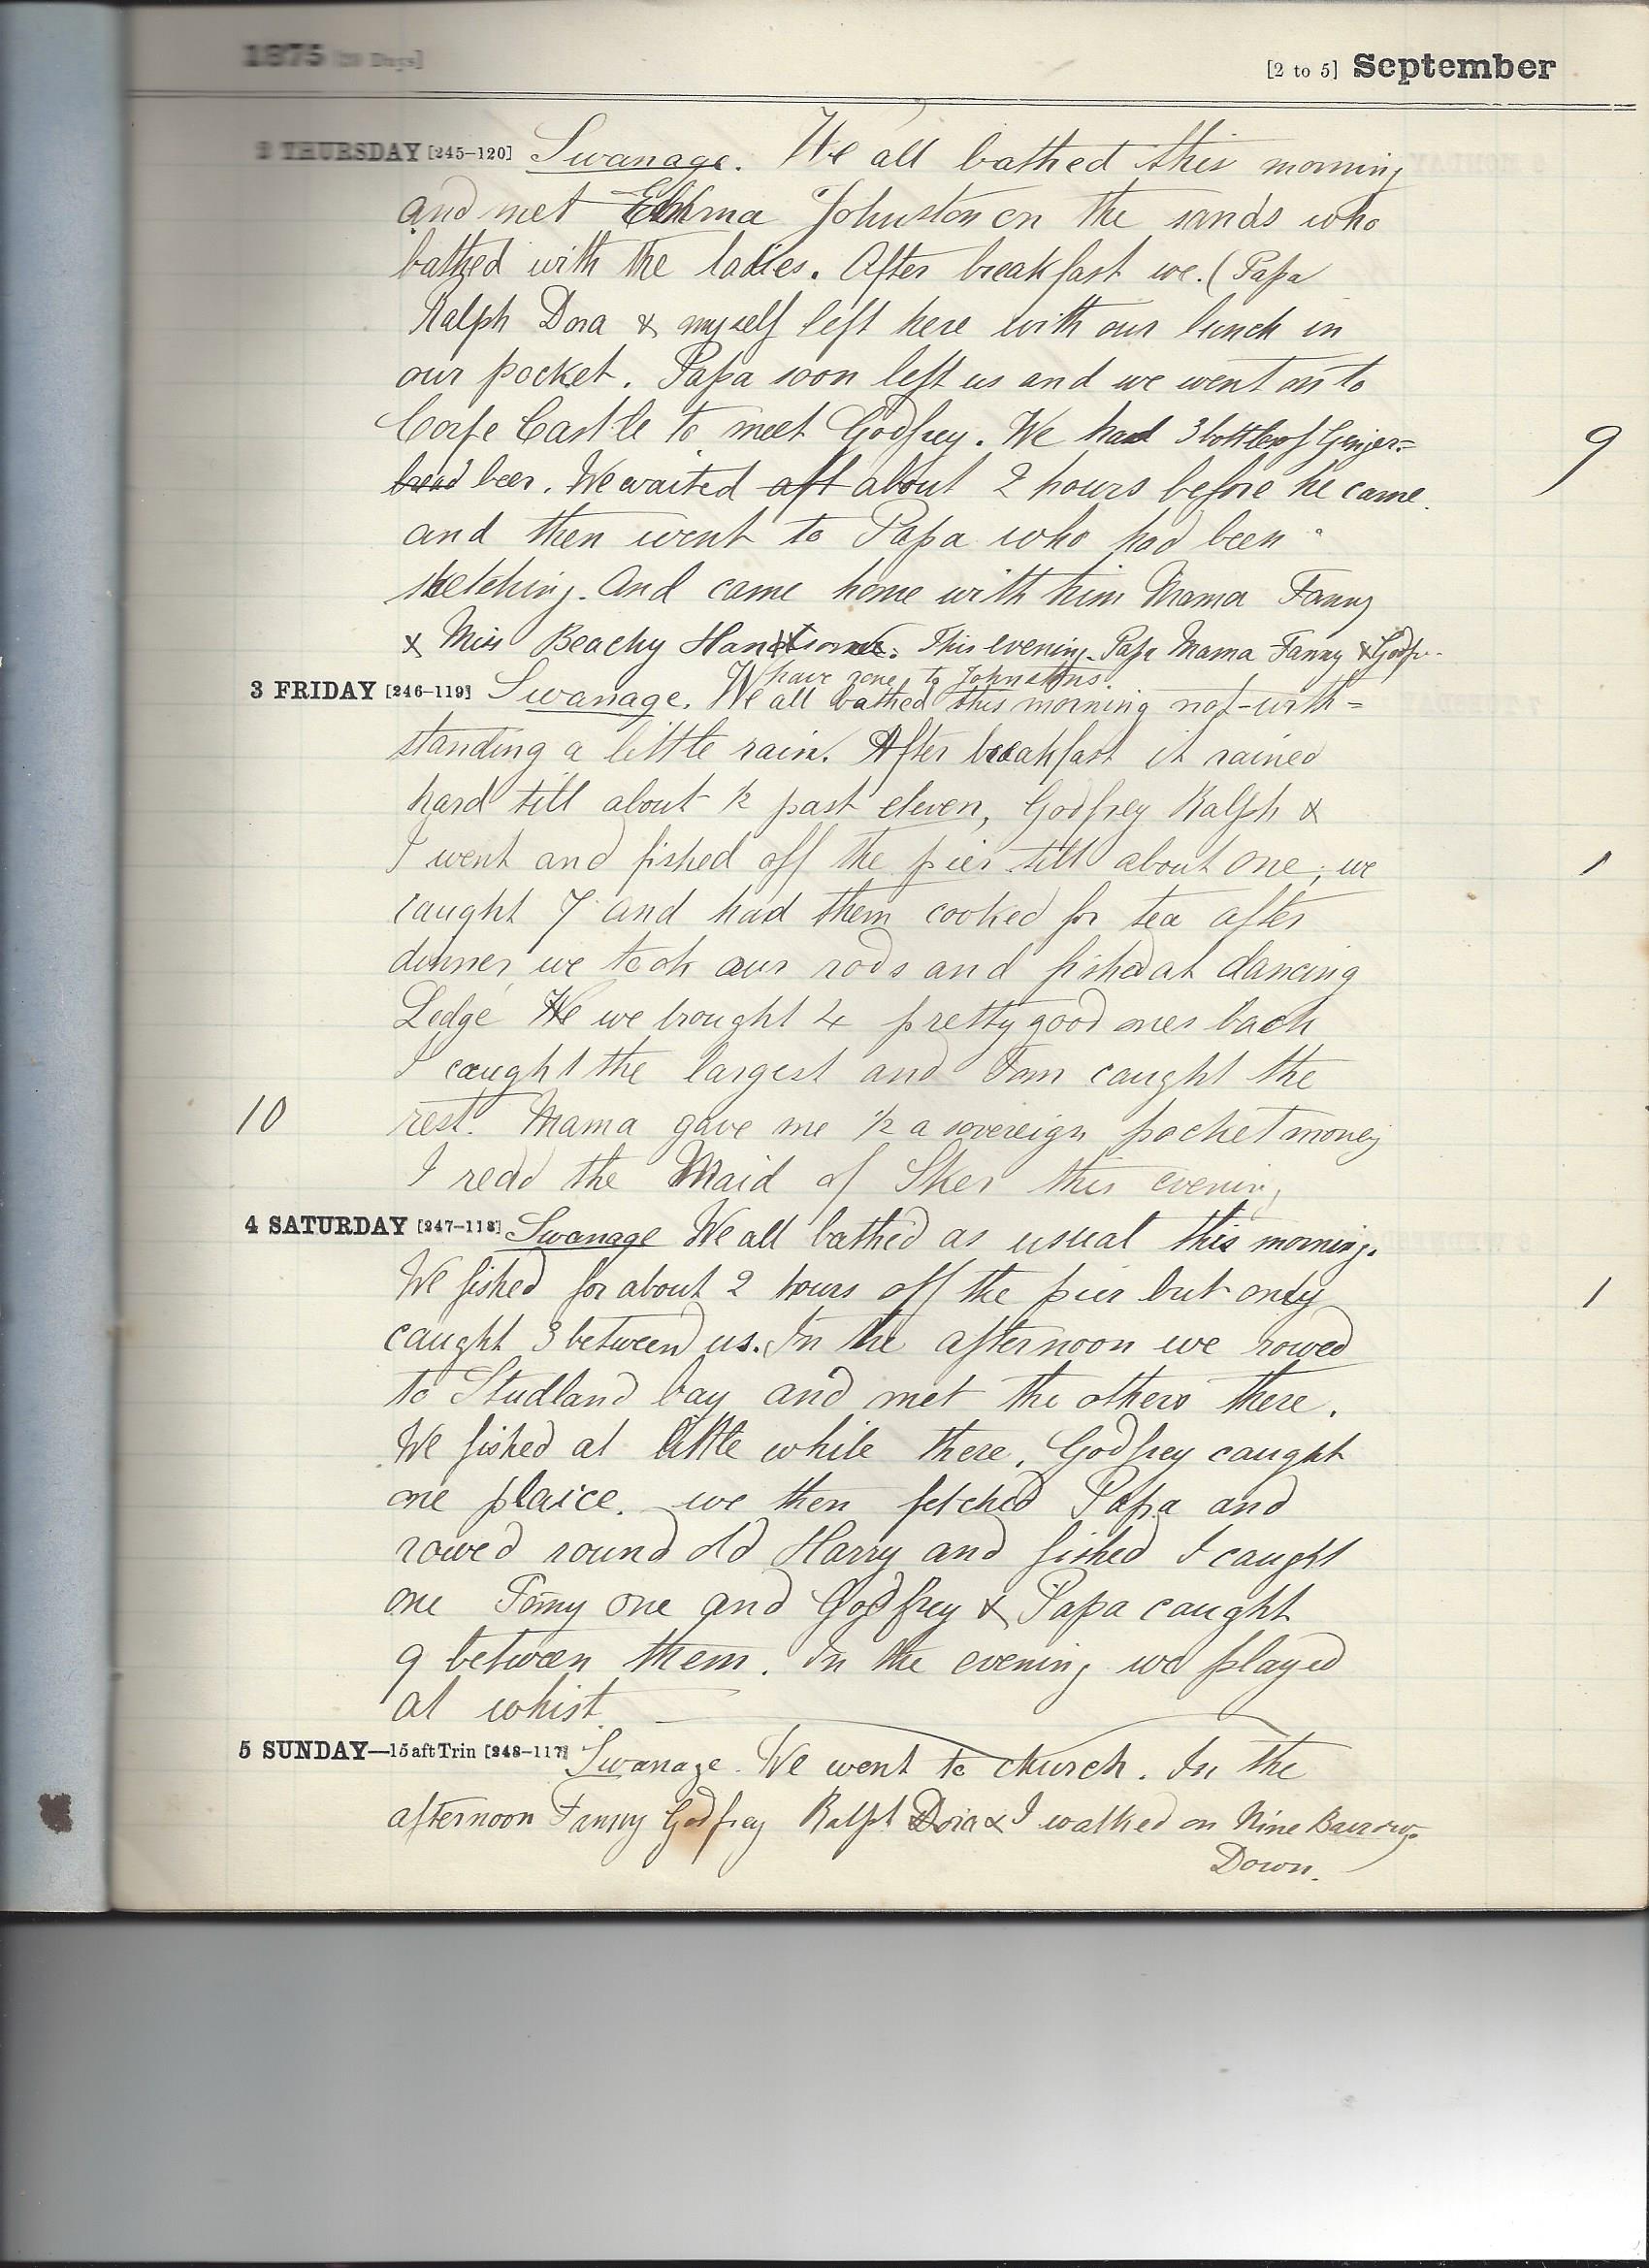 1875 [30 Days] [2 to 5] September
2 THURSDAY [245-120] Swanage. We all bathed this morning
and met Emma Johnston on the sands who
bathed with the ladies. After breakfast we (Papa
Ralph Dora & myself left here with our lunch in
our pocket. Papa soon left us and we went on to
Corfe Castle to meet Godfrey. We had 3 bottles of Ginger= 9
bread beer. We waited aft about 2 hours before he came.
and then went to Papa who had been
sketching. And came home with him Mama Fanny
& Miss Beachy. This evening Papa Mama Fanny & Godf
have gone to Johnstons.
3 FRIDAY [246-119] Swanage. We all bathed this morning not-with=
standing a little rain. After breakfast it rained
hard till about ½ past eleven, Godfrey Ralph &
I went and fished off the pier till about one; we 1
caught 7 and had them cooked for tea after
dinner we took our rods and fished at dancing
Ledge He we brought 4 pretty good ones back
I caught the largest and Tom caught the
10 rest. Mama gave me ½ a sovereign pocket money
I read the Maid of Sker this evening
4 SATURDAY [247-118] Swanage We all bathed as usual this morning.
We fished for about 2 hours off the pier but only 1
caught 3 between us. In the afternoon we rowed
to Studland bay and met the others there.
We fished at little while there. Godfrey caught
one plaice. we then fetched Papa and
rowed round old Harry and fished I caught
one one and Godfrey & Papa caught
9 between them. In the evening we played
at whist
5 SUNDAY—15 aft Trin [248-117] Swanage. We went to church. In the
afternoon Fanny Godfrey Ralph Dora & I walked on Nine Barrow
Down.